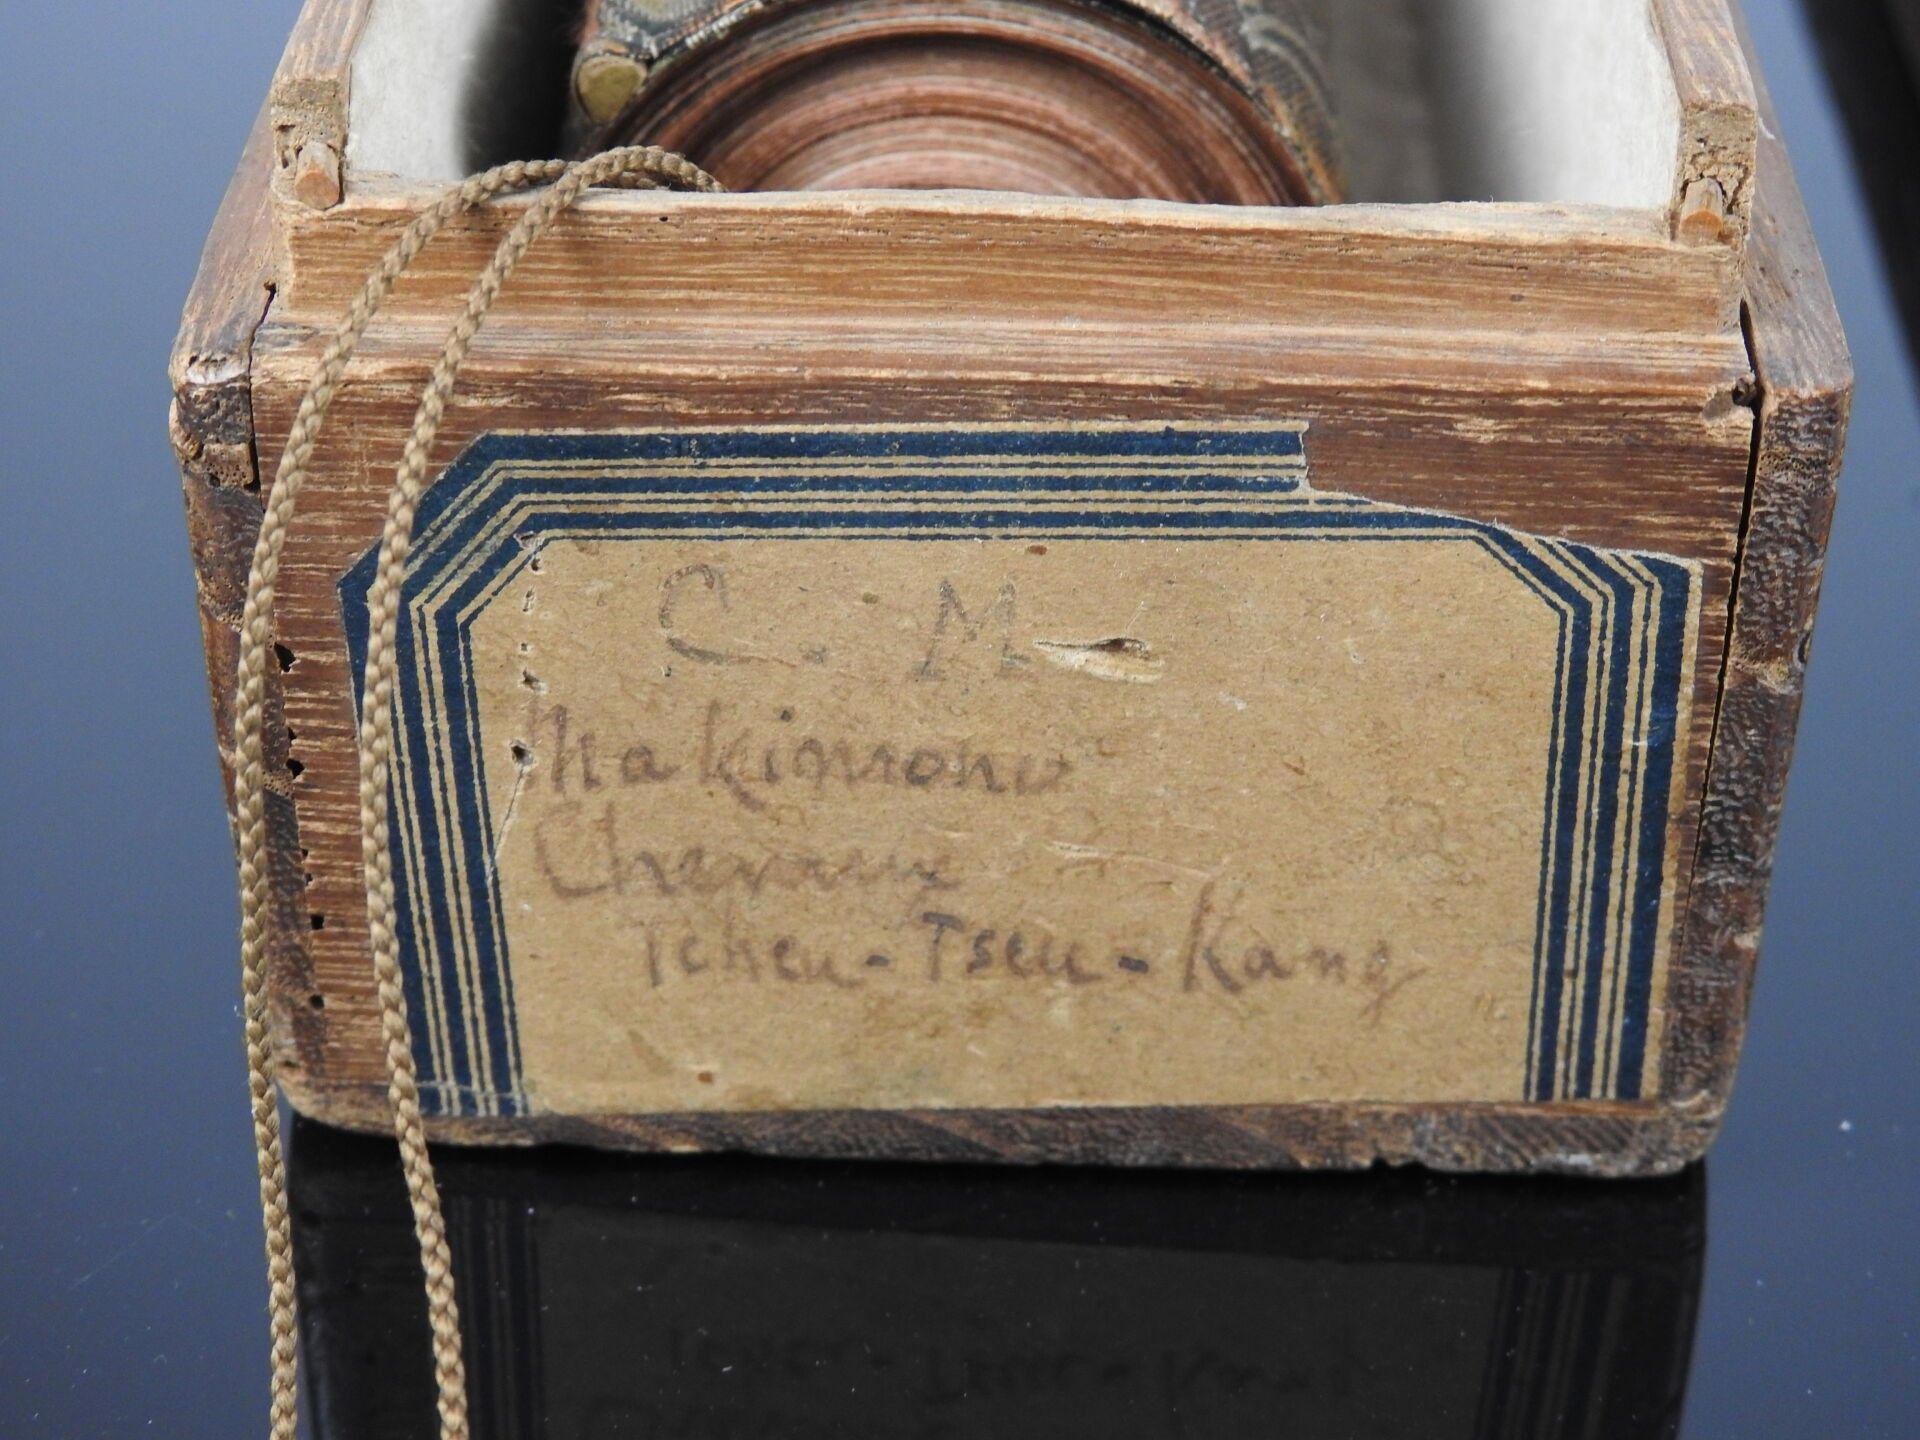 C. M
Makimono
Chevaux
Tcheu-Tseu-Kang